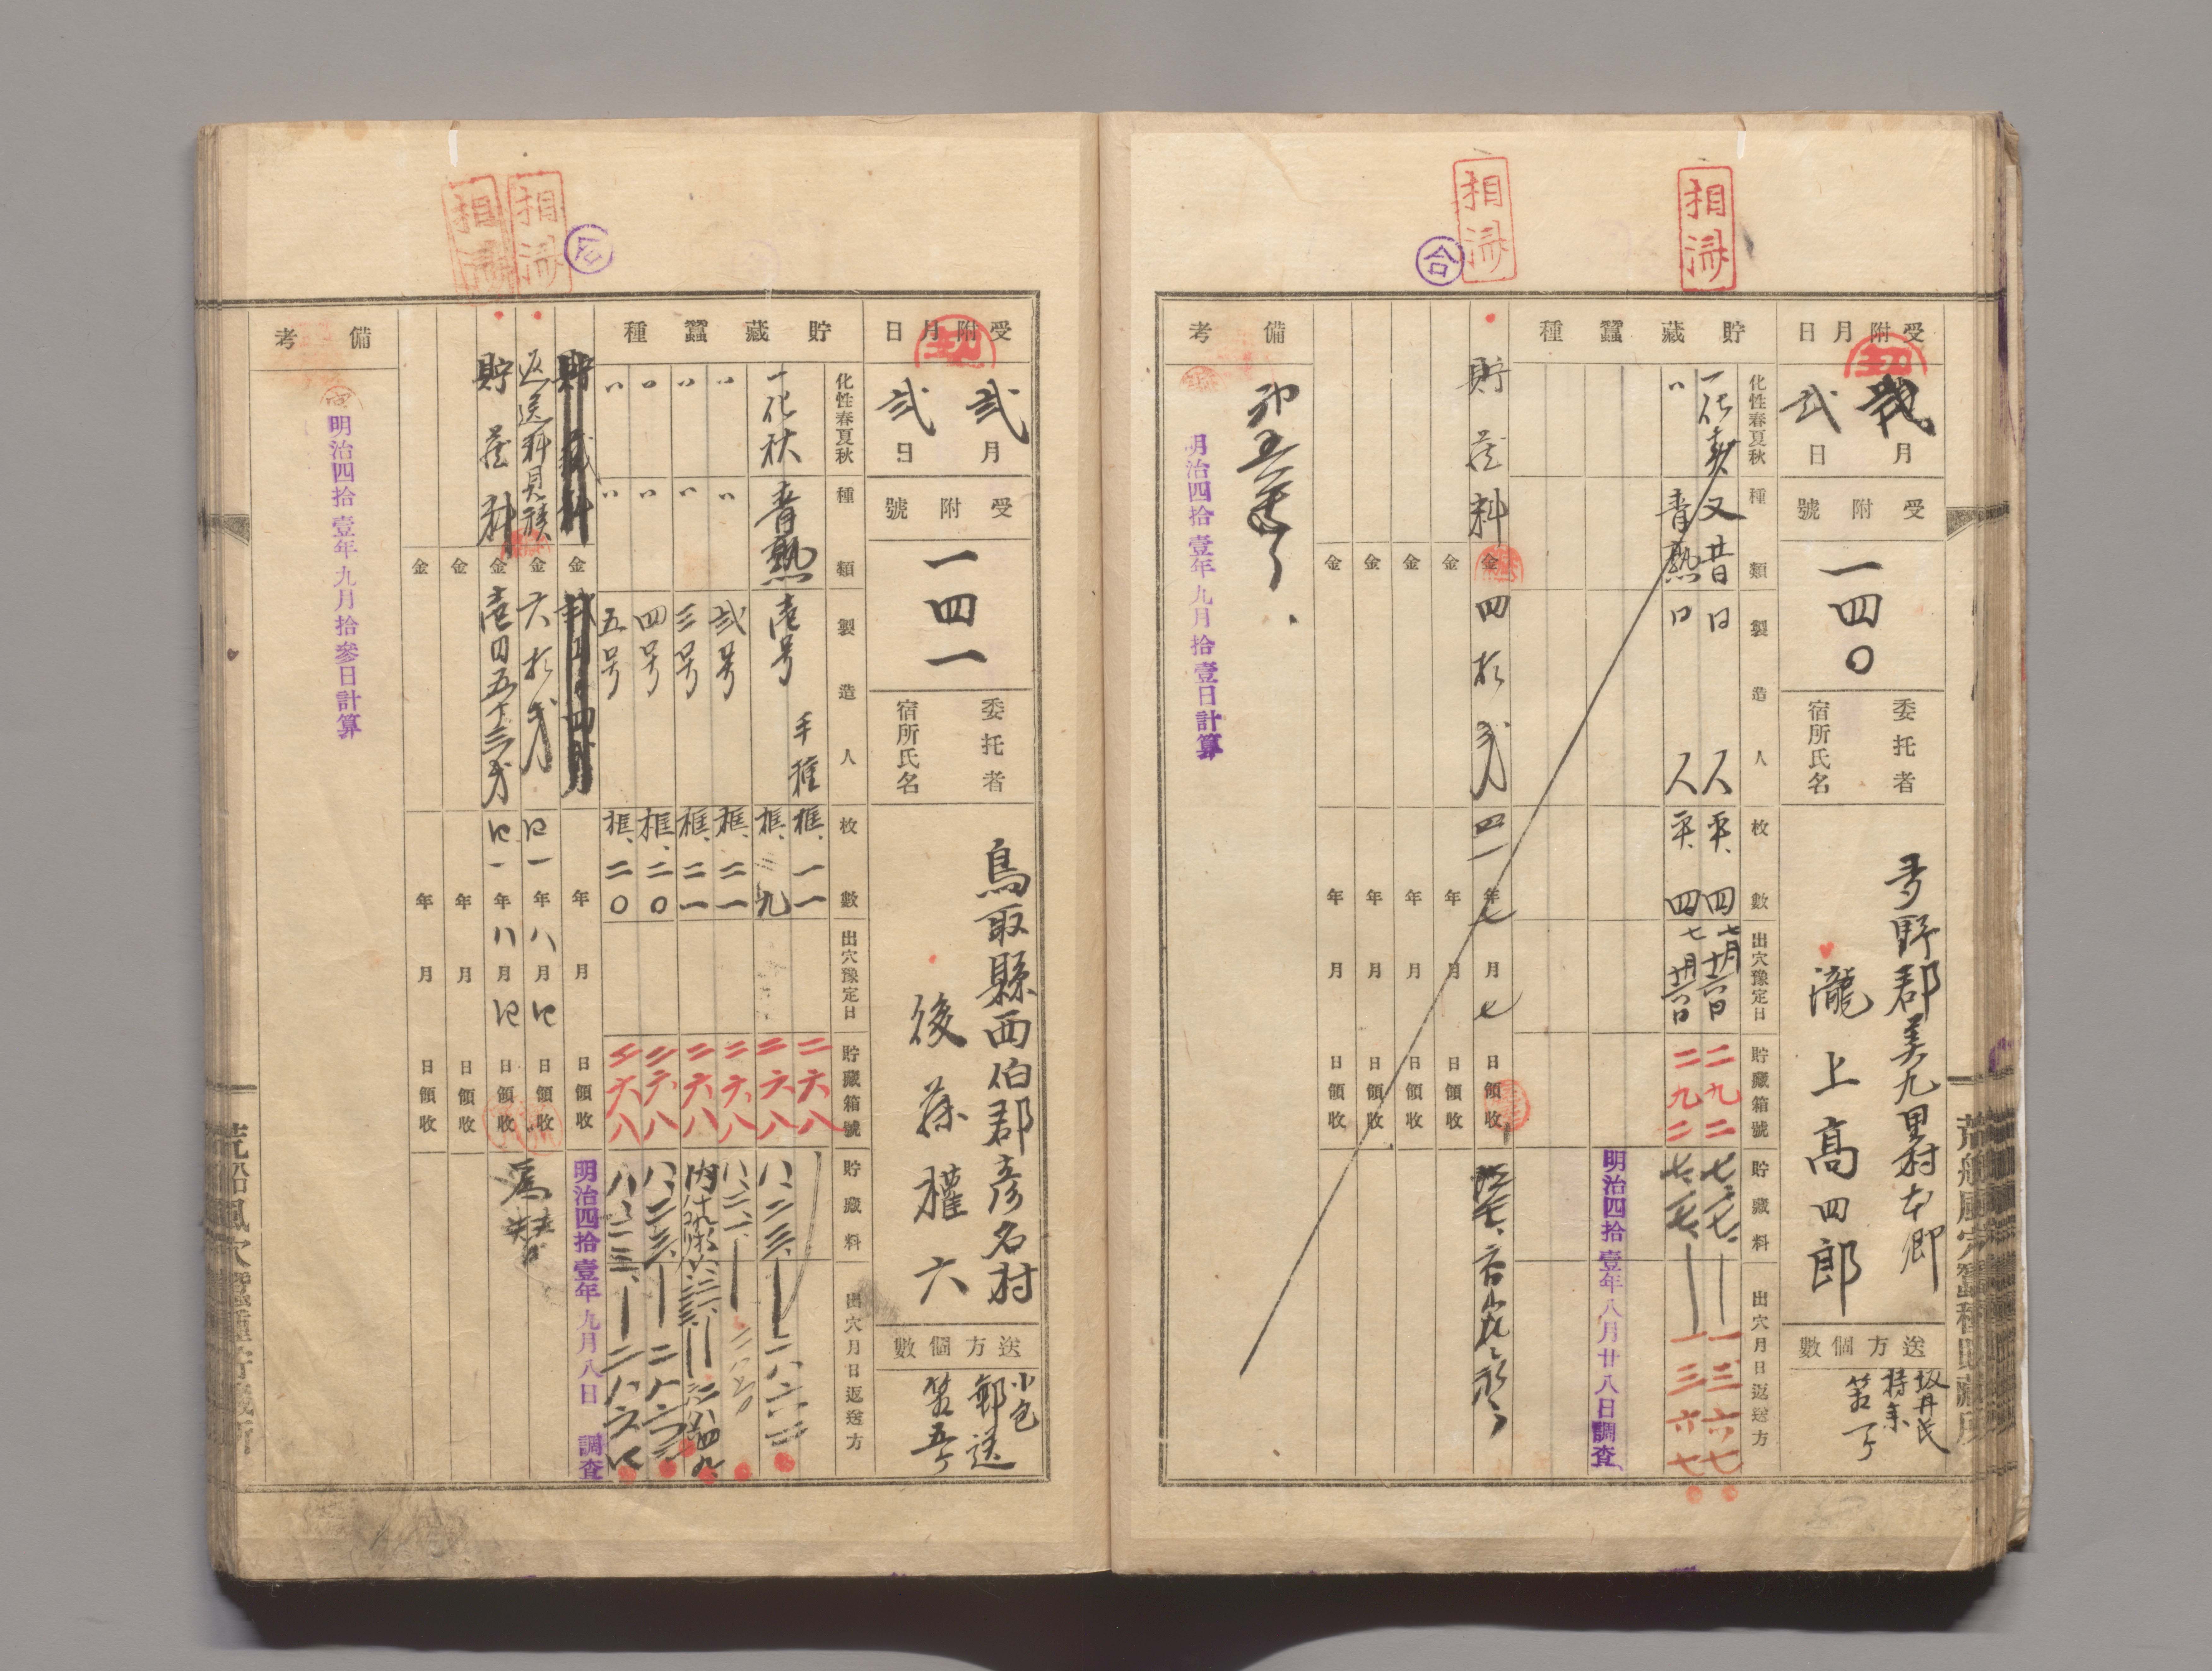 相済
相済
合
受附月日
貳月
弐日
受附號
一四〇
委托者
宿所氏名
多野郡美九里村本郷
瀧上高四郎
送方個數
坂井氏
持参
貯藏蠶種
化性春夏秋
種類
製造人
枚數
出穴豫定日
貯藏箱號
貯藏料
出穴月日返送方
一化
又昔
人
平、四
二九二
一三六七
〃
青熱
人
平、四
二九二
一三六七
明治四拾壹年八月廿八日調査
貯蔵料
金四拾弐
四一年七月七日領收
金
年月日領收
金
年月日領收
金
年月日領收
金
年月日領收
備考
明治四拾壹年九月拾壹日計算
荒船風穴蠶種貯藏所
相済
相済
合
受附月日
弐月
弐日
受附號
一四一
委托者
宿所氏名
鳥取縣西伯郡彦名村
後藤權六
送方個數
小包
郵送
貯藏蠶種
化性春夏秋
種類
製造人
枚數
出穴豫定日
貯藏箱號
貯藏料
出穴月日返送方
手種
框、一一
二六八
一化秋
青熱
壱号
框、二九
二六八
八、二三、
〃
〃
弐号
框、二一
二六八
〃
〃
三号
框、二一
二六八
〃
〃
四号
框、二〇
二六八
八、二三、
〃
〃
五号
框、二〇
二六八
八、二三、
明治四拾壹年九月八日調査
貯蔵料
金
年月日領收
返送料見積
金六拾弐
四一年八月四日領收
貯蔵料
金壱円五十三
四一年八月四日領收
為替
金
年月日領收
金
年月日領收
備考
明治四拾壹年九月拾參日計算
荒船風穴蠶種貯藏所